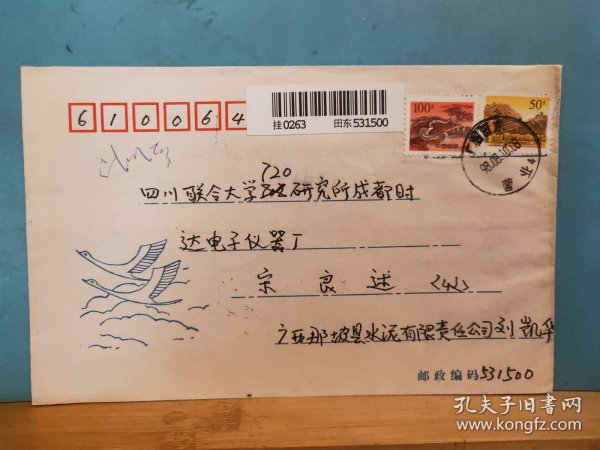 610064
挂0263 田东531500
100分
中国邮政
50分
广西田东
98.01.09.08
720
四川联合大学研究所成都时
达电子仪器厂
宗良述 〈4〉
广西那坡县水泥有限责任公司刘凯华
邮政编码531500
孔夫子旧书网
www.kongfz.com